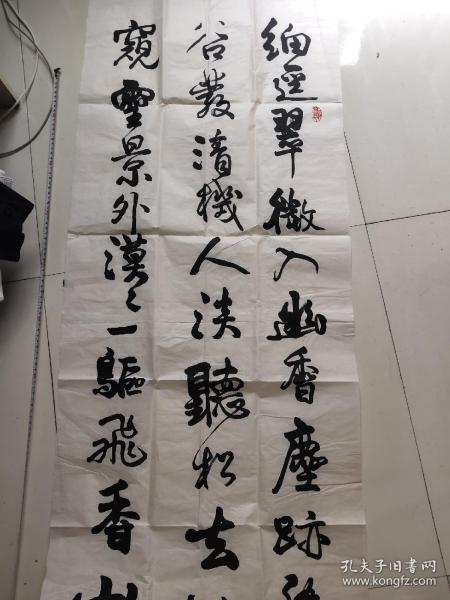 細逕翠微入幽香塵跡
谷發清機人淡聽松去
窺雲景外漠〻一驅飛香
孔夫子旧书网
www.kongfz.com